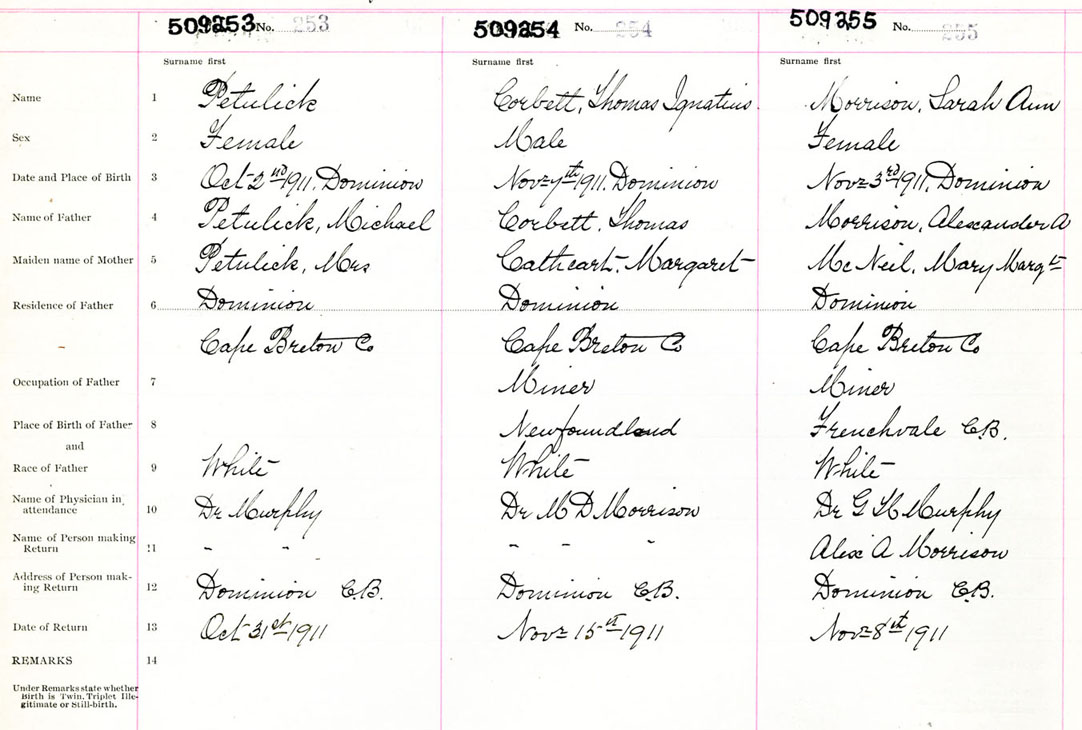 509253 No. 253 509254 No. 254 509255 No. 255
Surname first Surname first Surname first
Name 1 Petulick Corbett, Thomas Ignatius Morrison, Sarah Ann
Sex 2 Female Male Female
Date and Place of Birth 3 Oct 2nd 1911. Dominion Nov 7th 1911. Dominion Nov 3rd 1911, Dominion
Name of Father 4 Petulick, Michael Corbett, Thomas Morrison, Alexander A
Maiden name of Mother 5 Petulick, Mrs Cathcart, Margaret McNeil, Mary Margt
Residence of Father 6 Dominion Dominion Dominion
Cape Breton Co Cape Breton Co Cape Breton Co
Occupation of Father 7 Miner Miner
Place of Birth of Father 8 Newfoundland Frenchvale C.B.
and
Race of Father 9 White White White
Name of Physician in
attendance 10 Dr Murphy Dr M D Morrison Dr G H Murphy
Name of Person making
Return 11 " " " " " Alex A Morrison
Address of Person mak-
ing Return 12 Dominion C.B. Dominion C.B. Dominion C.B.
Date of Return 13 Oct 31st 1911 Nov 15th 1911 Nov 8th 1911
REMARKS 14
Under Remarks state whether
Birth is Twin, Triplet Ille-
gitimate or Still-birth.